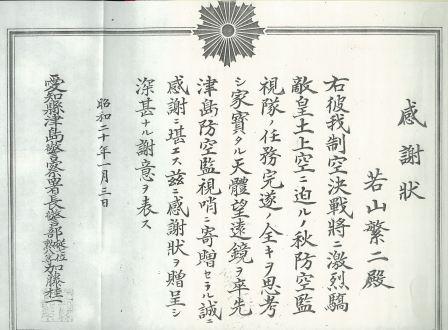 感謝状
若山繁二殿
右彼我制空決戰將ニ激烈驕
敵皇土上空ニ迫ルノ秋防空監
視隊ノ任務完遂ノ全キヲ思考
シ家寶タル天體望遠鏡ヲ卒先
津島防空監視哨ニ寄贈セラル誠ニ
感謝ニ堪エス茲ニ感謝狀ヲ贈呈シ
深甚ナル謝意ヲ表ス
昭和二十年一月三日
愛知縣津島警察署長警部 加藤桂一